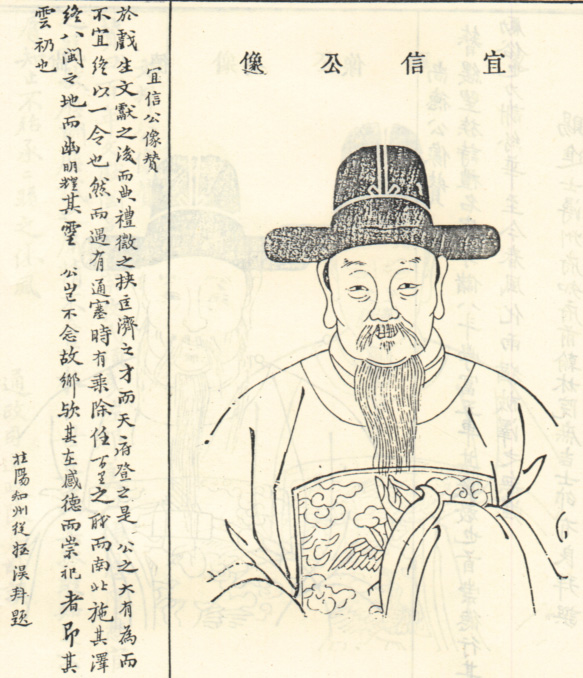 宜信公像
宜信公像贊
於戲生文獻之後而典禮徵之挾匡濟之才而天府登之是公之大有為而
不宜終以一令也然而遇有通塞時有乘除任百里之 而南北施其澤
終八閩之地而幽明耀其靈 公豈不念故鄉歟其在感德而崇祀者即其
雲礽也
桂陽知州從姪 拜題